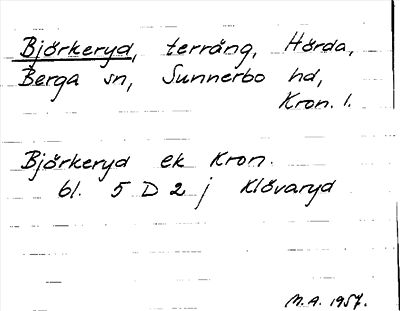 Björkeryd, terräng, Hörda,
Berga sn, Sunnerbo hd,
Kron. l.
Björkeryd ek Kron.
bl. 5 D 2 j Klövaryd
M.A. 1957.